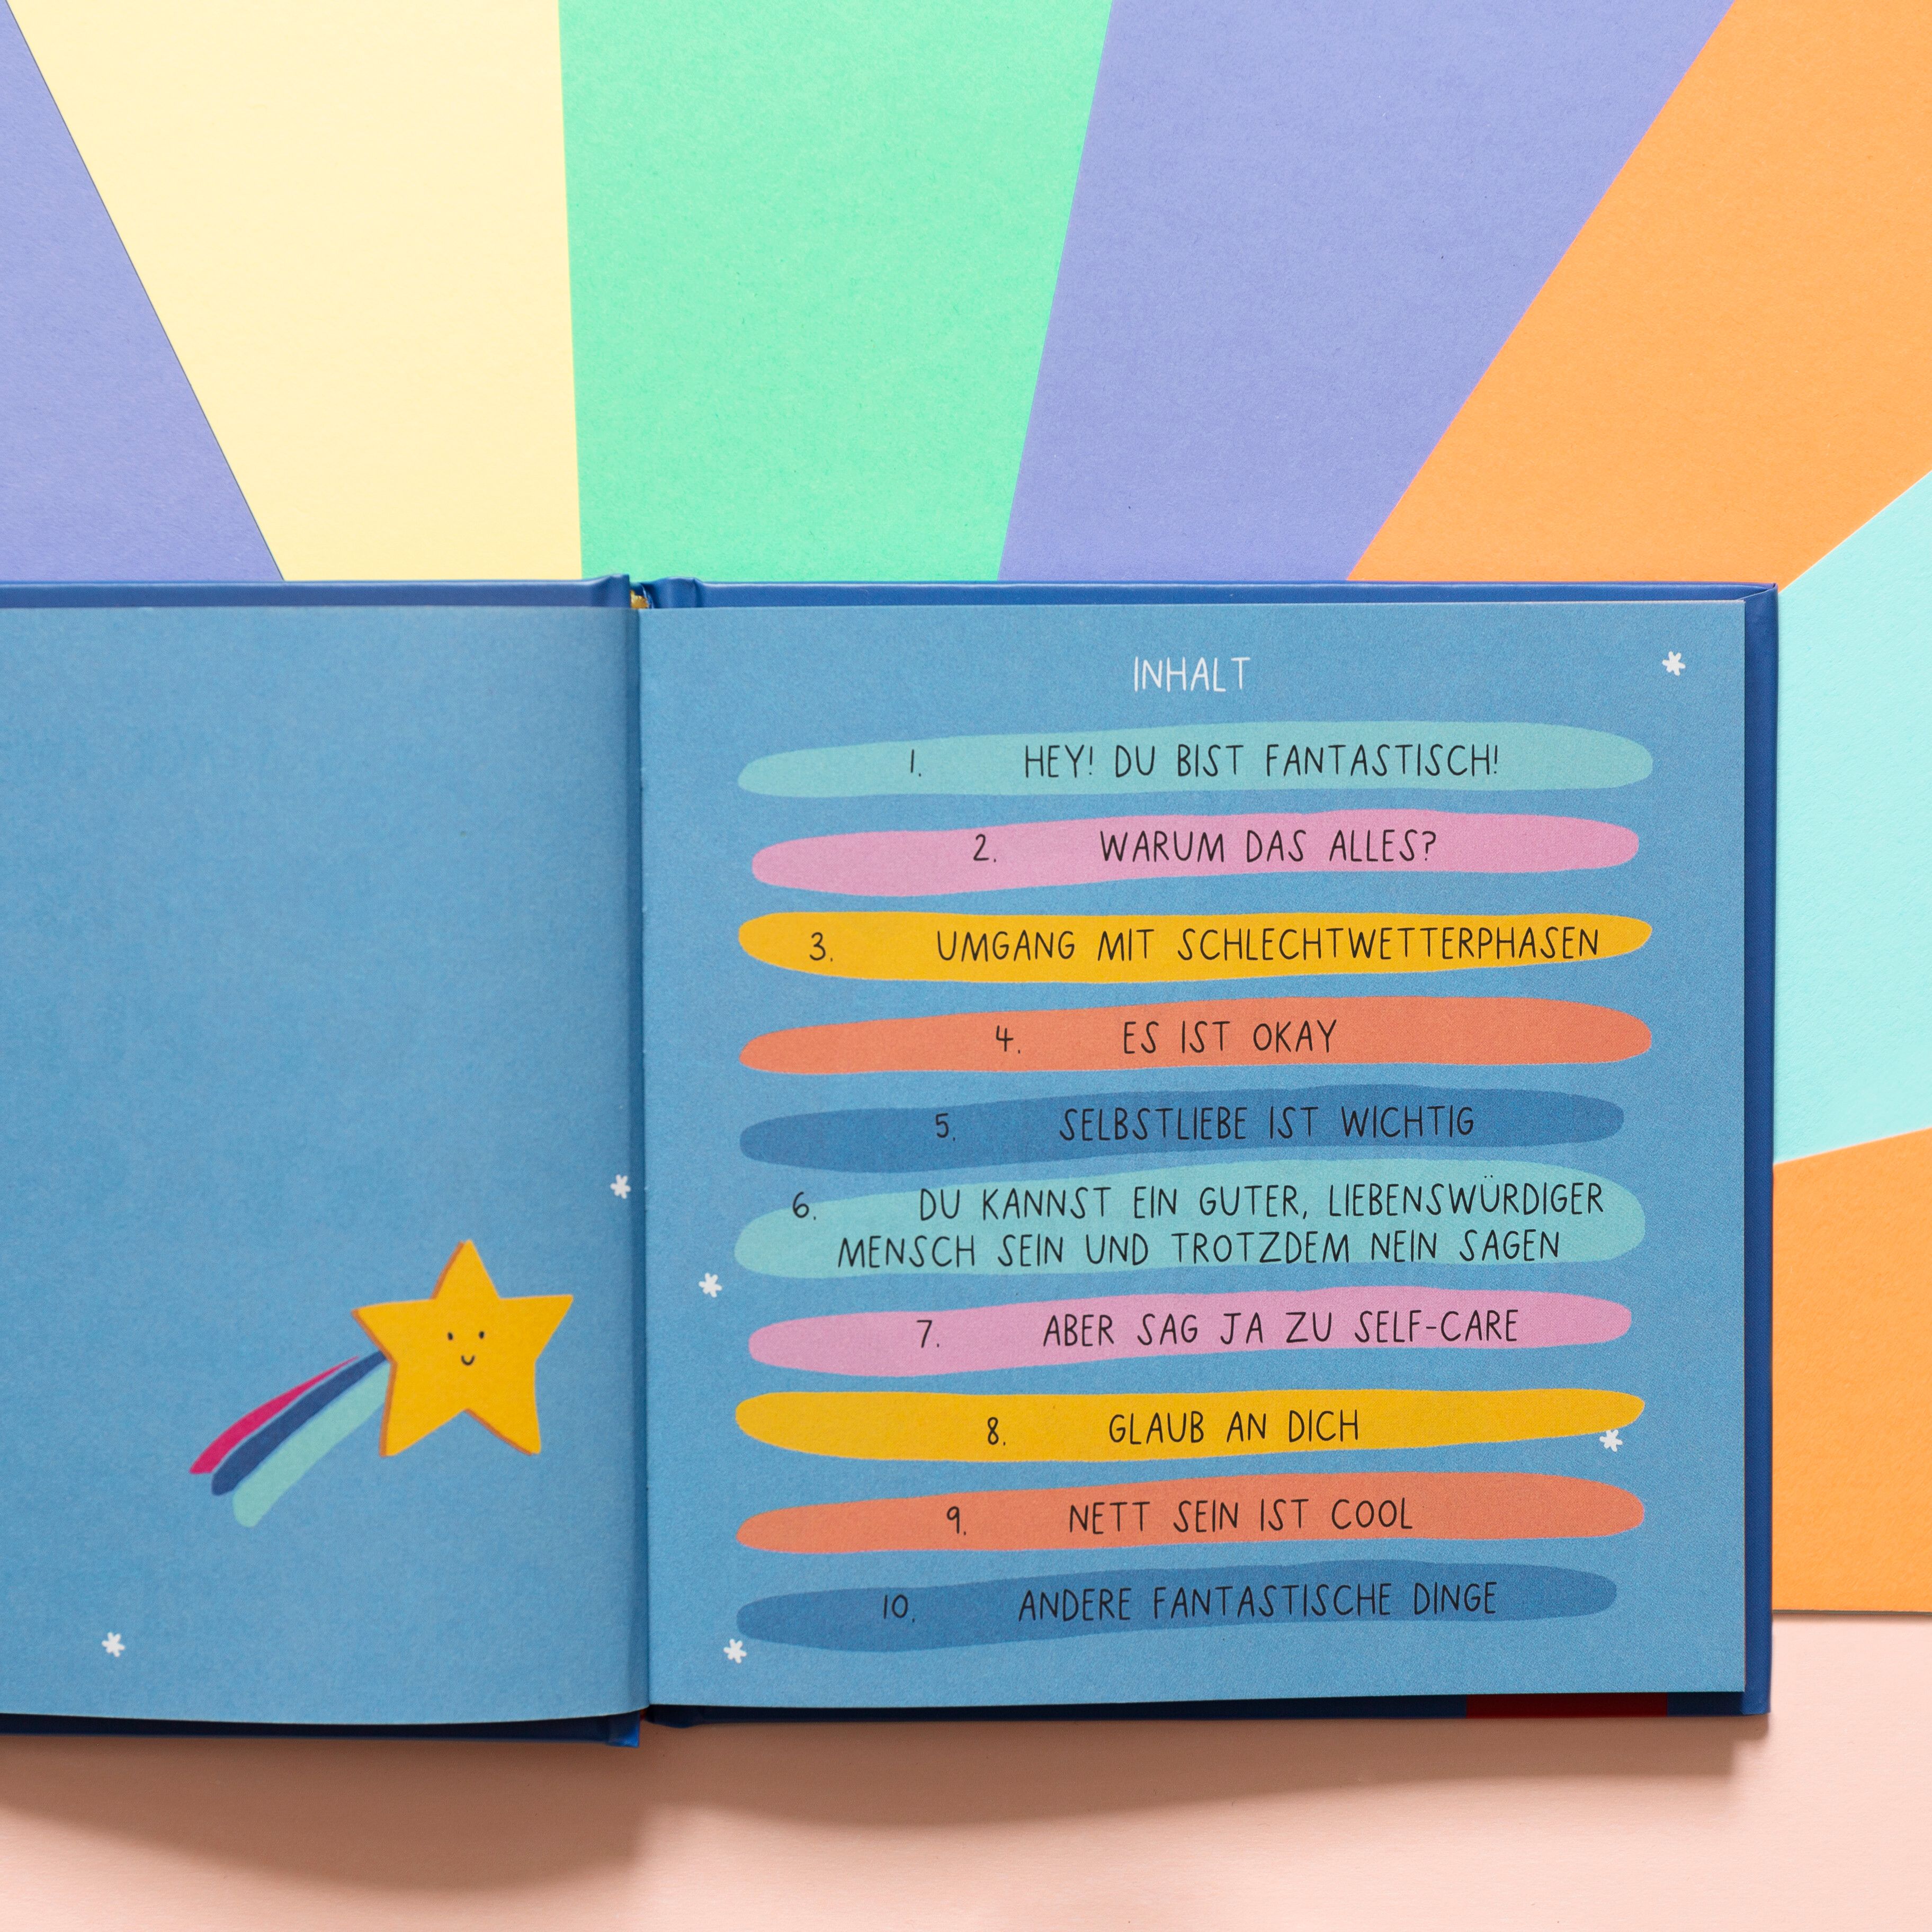 INHALT
1. HEY! DU BIST FANTASTISCH!
2. WARUM DAS ALLES?
3. UMGANG MIT SCHLECHTWETTERPHASEN
4. ES IST OKAY
5. SELBSTLIEBE IST WICHTIG
6. DU KANNST EIN GUTER, LIEBENSWÜRDIGER
MENSCH SEIN UND TROTZDEM NEIN SAGEN
7. ABER SAG JA ZU SELF-CARE
8. GLAUB AN DICH
9. NETT SEIN IST COOL
10. ANDERE FANTASTISCHE DINGE